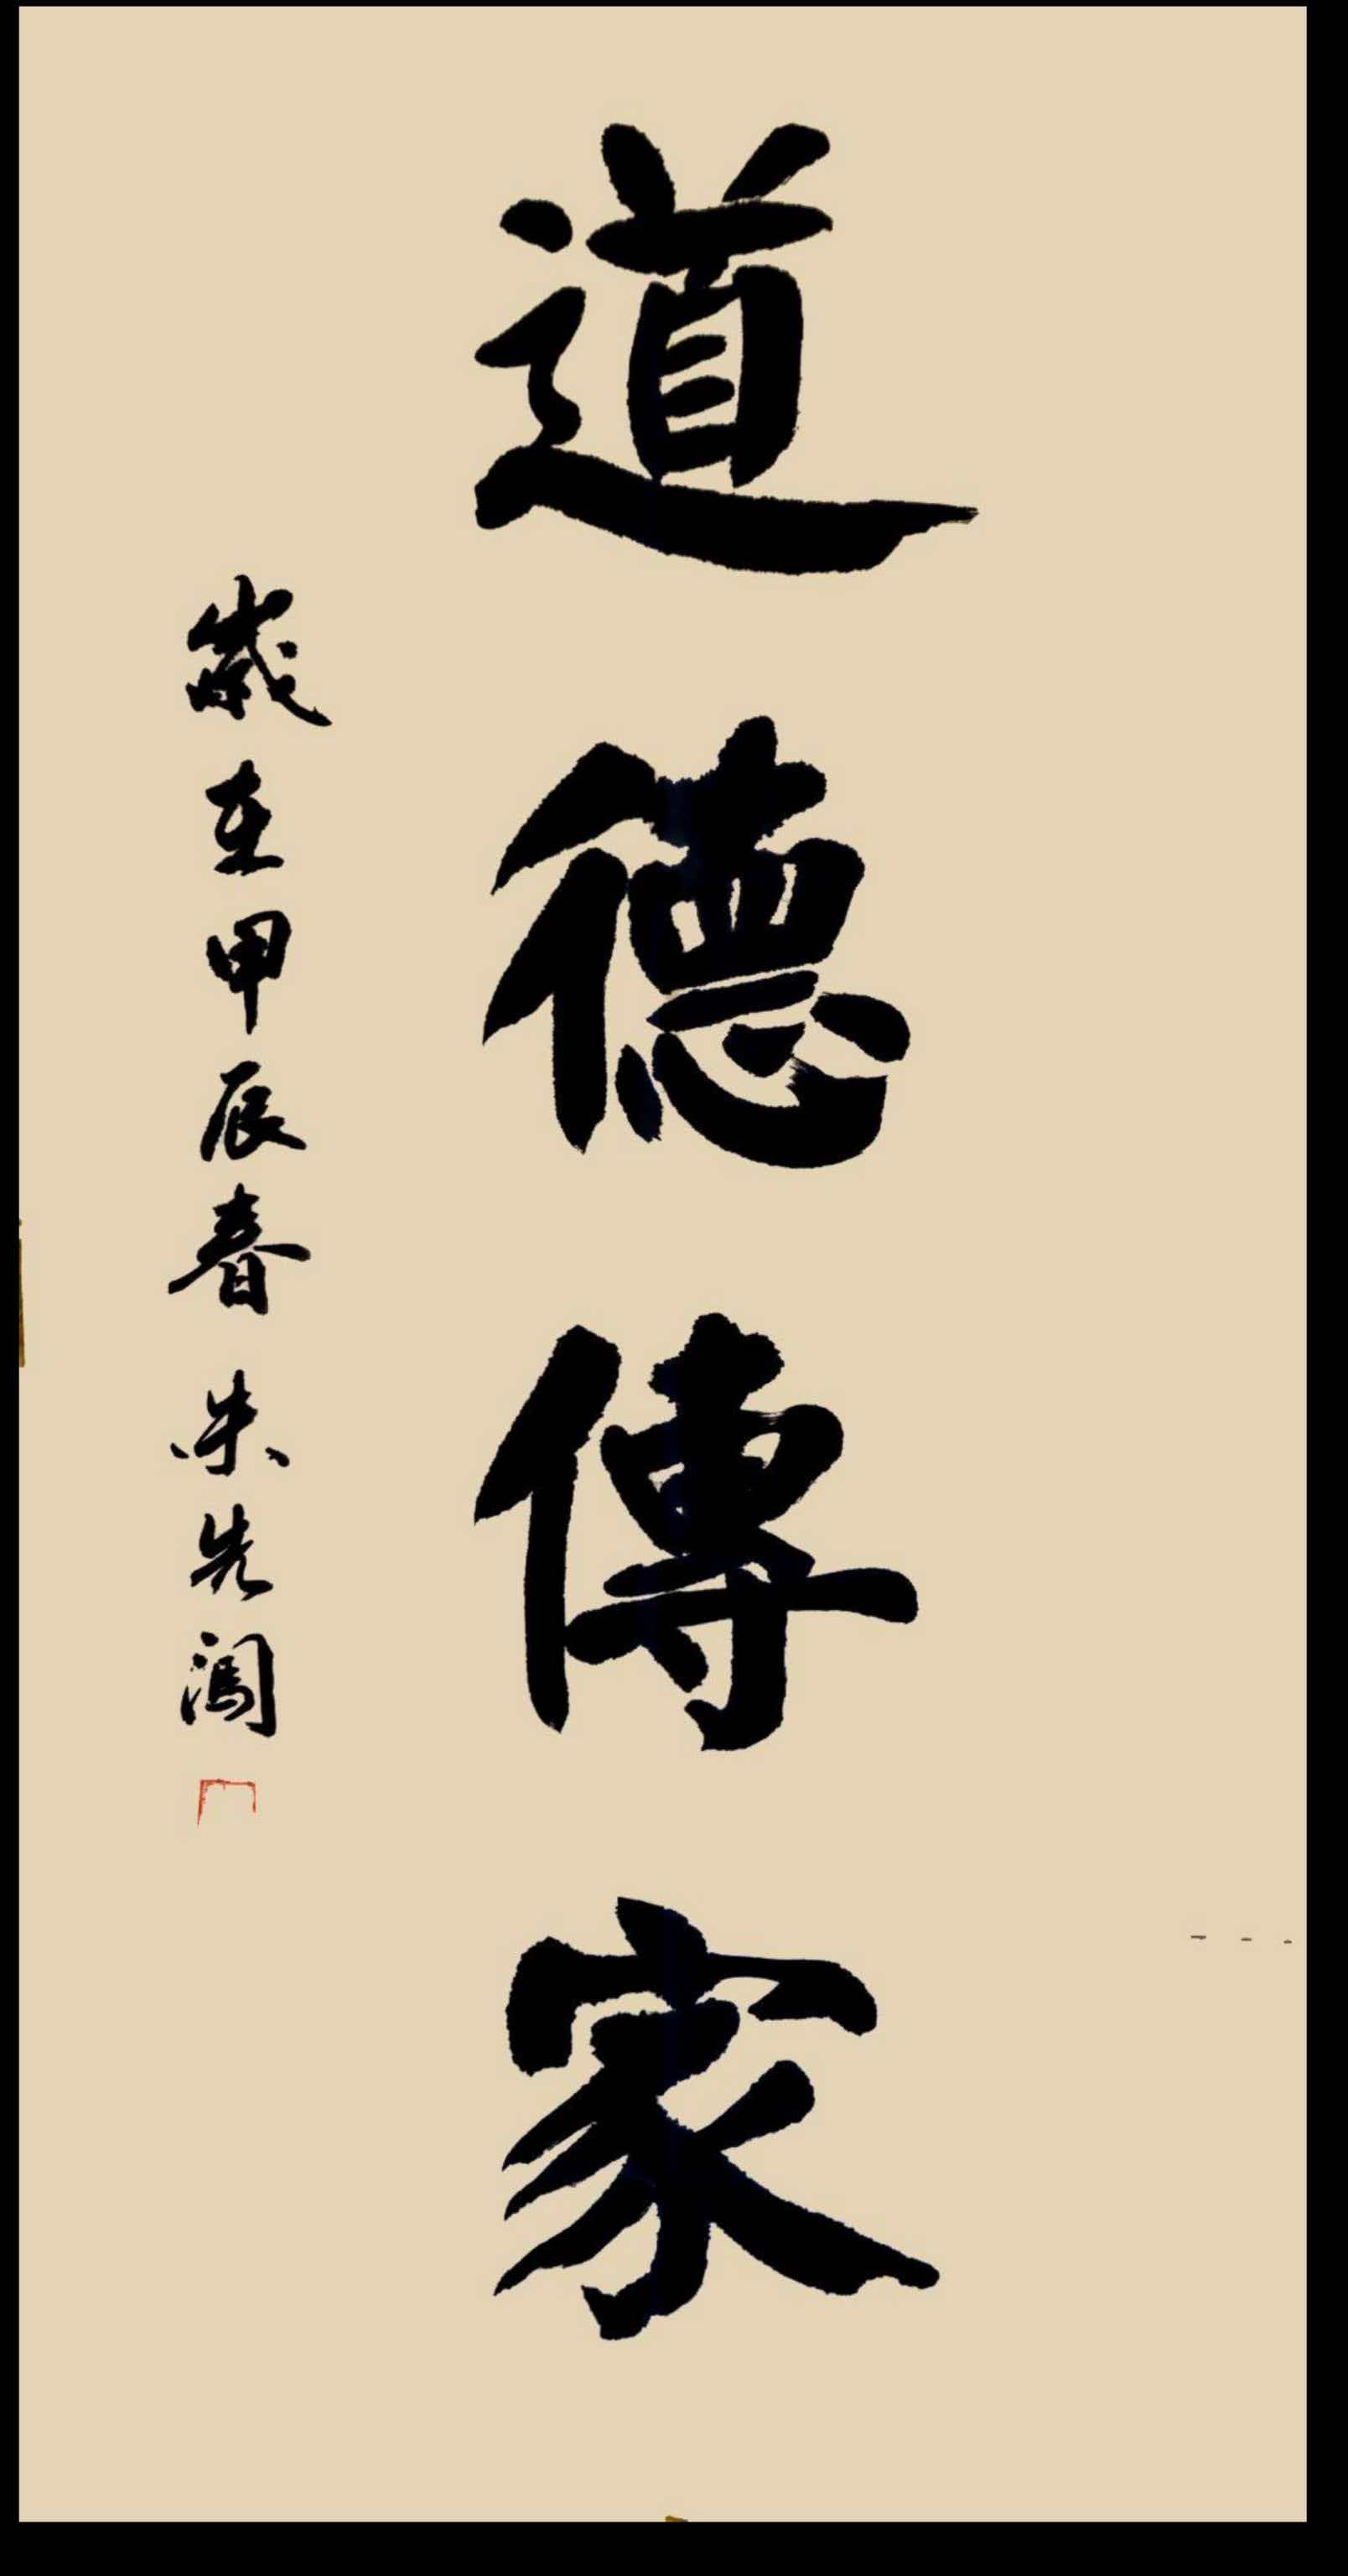 道德傳家
歲在甲辰春 朱先闖